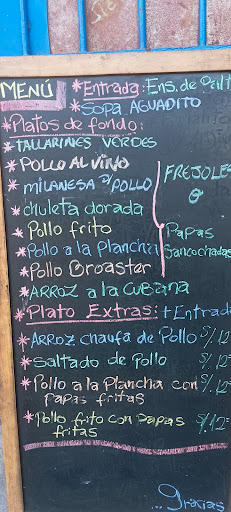 MENÚ
*Entrada: Ens. de Palt
*Sopa AGUADITO
*Platos de fondo:
*TALLARINES VERDES
*POLLO AL VINO
*MILANESA D/POLLO
*chuleta dorada
*Pollo frito
*Pollo a la Plancha
*Pollo Broaster
*ARROZ a la CUBANA
FREJOLES
o
Papas
Sancochadas
*Plato Extras: + Entrada
*ARROZ chaufa de Pollo S/. 12=
*Saltado de Pollo S/. 12=
*Pollo a la Plancha con S/. 12=
Papas fritas
*Pollo frito con Papas S/. 12=
fritas
...Gracias